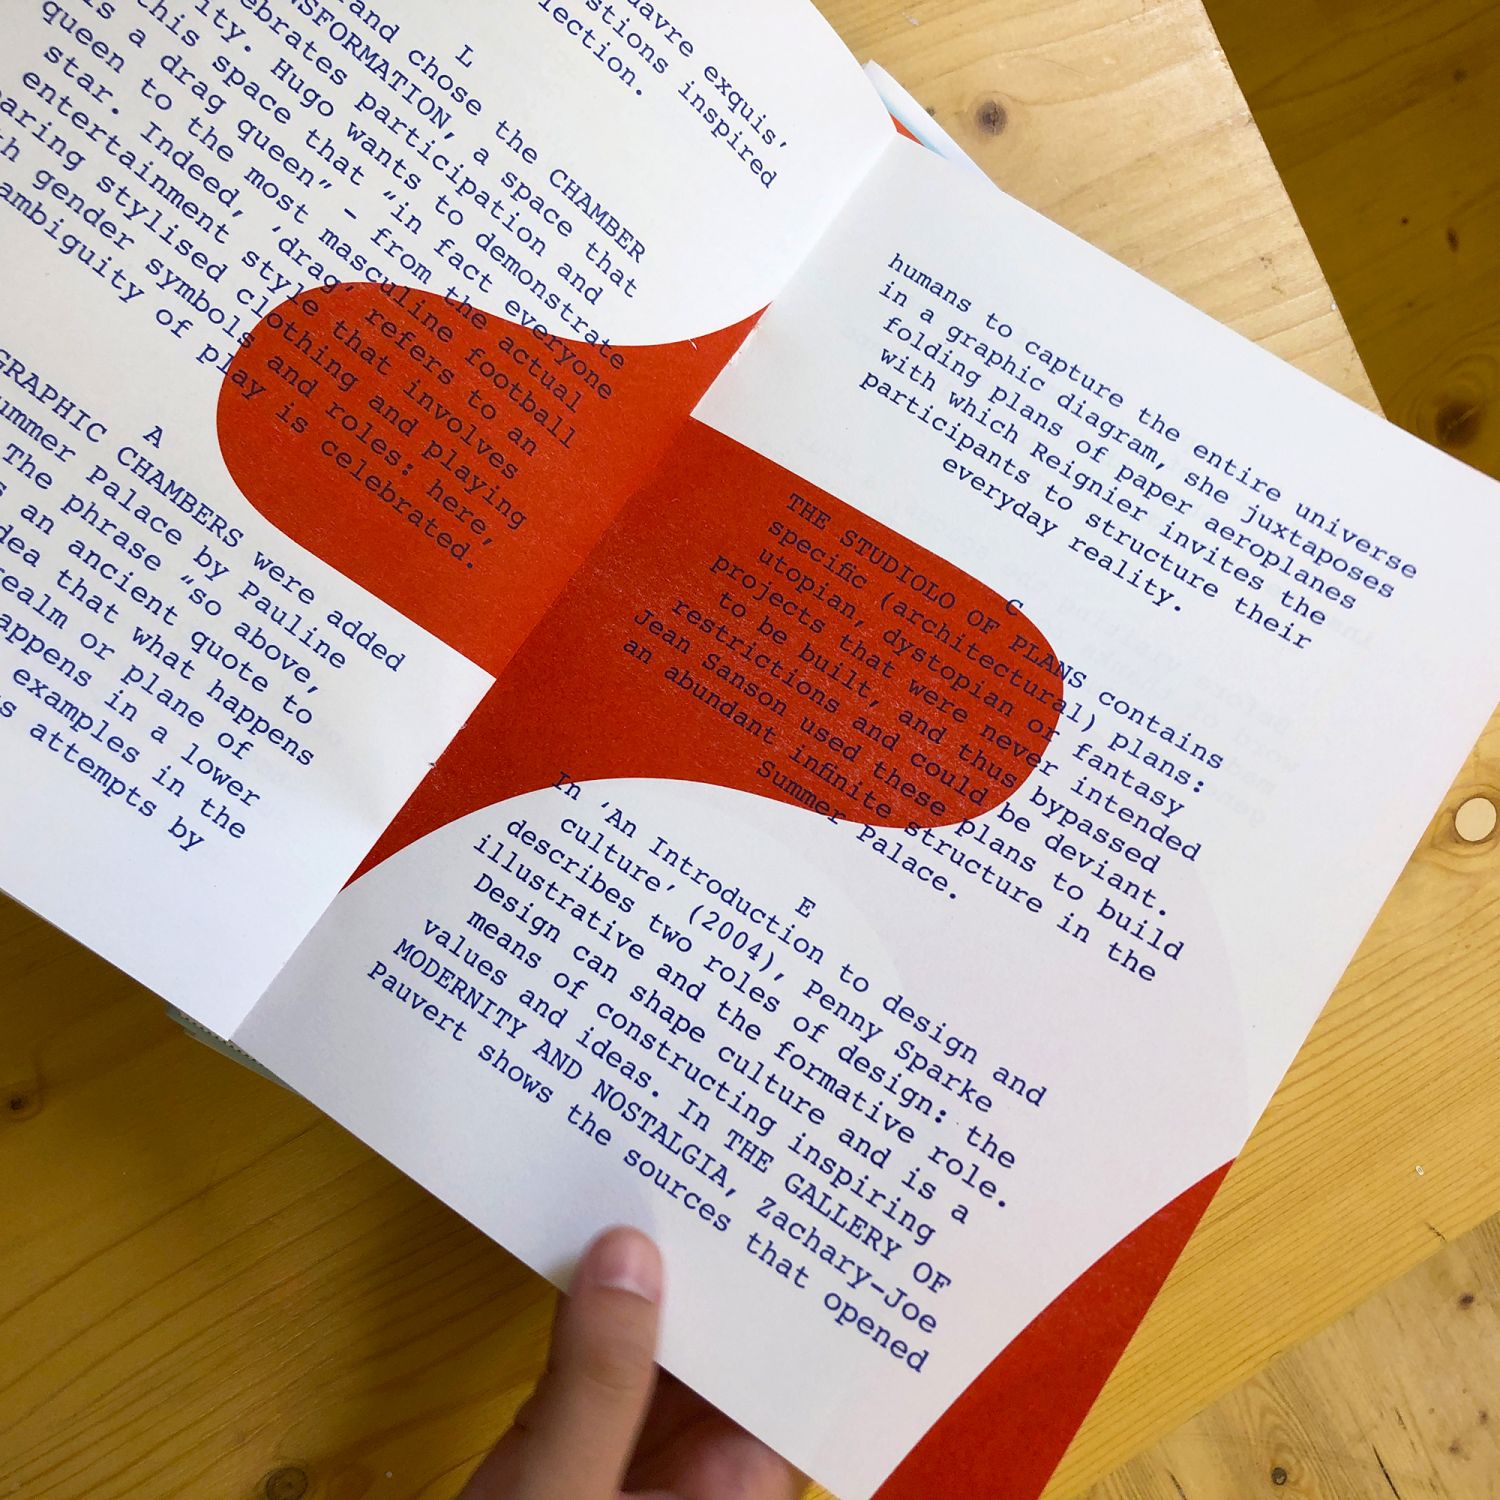 davre exquis'
stions inspired
lection.
L
and chose the CHAMBER
NSFORMATION, a space that
ebrates participation and
ity. Hugo wants to demonstrate
this space that “in fact everyone
is a drag queen” – from the actual
queen to the most masculine football
star. Indeed, ‘drag’ refers to an
entertainment style that involves
aring stylised clothing and playing
th gender symbols and roles: here,
ambiguity of play is celebrated.
A
GRAPHIC CHAMBERS were added
ummer Palace by Pauline
The phrase “so above,
s an ancient quote to
dea that what happens
ealm or plane of
appens in a lower
examples in the
s attempts by
humans to capture the entire universe
in a graphic diagram, she juxtaposes
folding plans of paper aeroplanes
with which Reignier invites the
participants to structure their
everyday reality.
C
THE STUDIOLO OF PLANS contains
specific (architectural) plans:
utopian, dystopian or fantasy
projects that were never intended
to be built, and thus bypassed
restrictions and could be deviant.
Jean Sanson used these plans to build
an abundant infinite structure in the
Summer Palace.
E
In ‘An Introduction to design and
culture’ (2004), Penny Sparke
describes two roles of design: the
illustrative and the formative role.
Design can shape culture and is a
means of constructing inspiring
values and ideas. In THE GALLERY OF
MODERNITY AND NOSTALGIA, Zachary-Joe
Pauvert shows the sources that opened